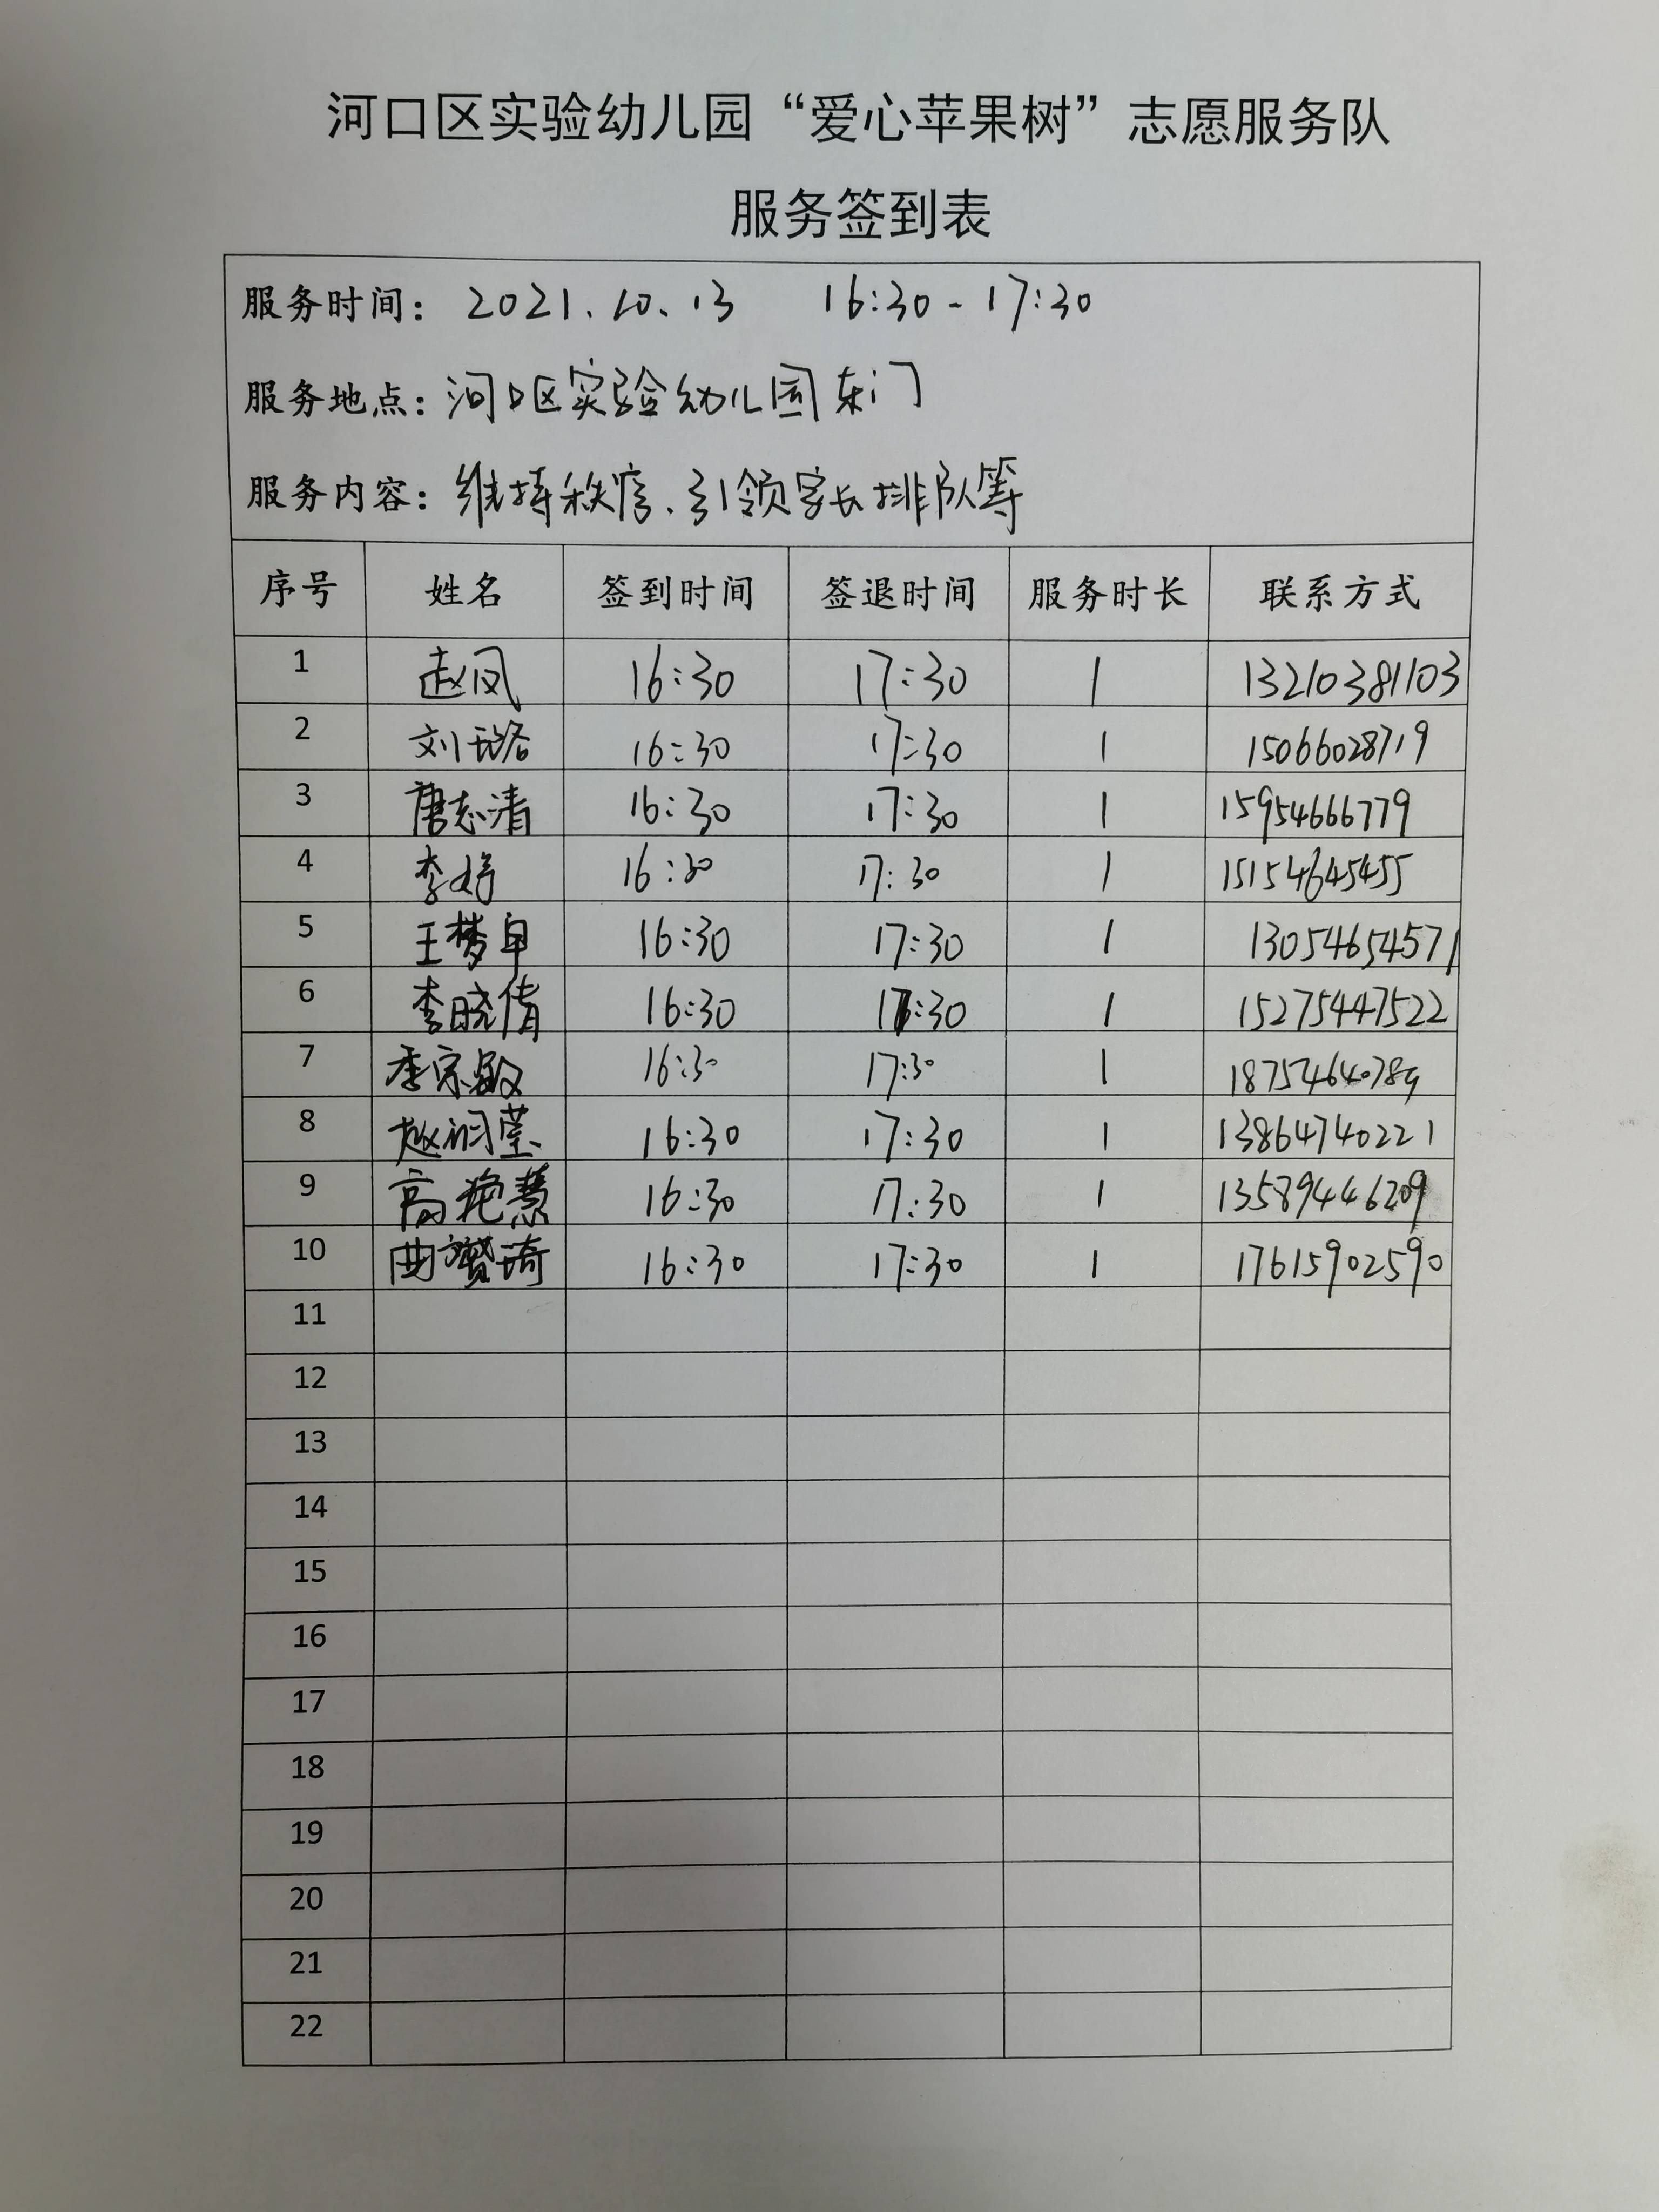 河口区实验幼儿园“爱心苹果树”志愿服务队
服务签到表
服务时间：2021.10.13 16:30-17:30
服务地点：河口区实验幼儿园东门
服务内容：维持秩序、引领家长排队等
序号 姓名 签到时间 签退时间 服务时长 联系方式
1 赵凤 16:30 17:30 1 13210381103
2 刘璐 16:30 17:30 1 15066028719
3 唐志清 16:30 17:30 1 15954666779
4 李婷 16:30 17:30 1 15154645455
5 王梦 16:30 17:30 1 13054654571
6 李晓倩 16:30 17:30 1 15275447522
7 季宗敏 16:30 17:30 1 18754640789
8 赵莹 16:30 17:30 1 13864740221
9 高艳慧 16:30 17:30 1 13589446209
10 曲赟琦 16:30 17:30 1 17615902590
11
12
13
14
15
16
17
18
19
20
21
22